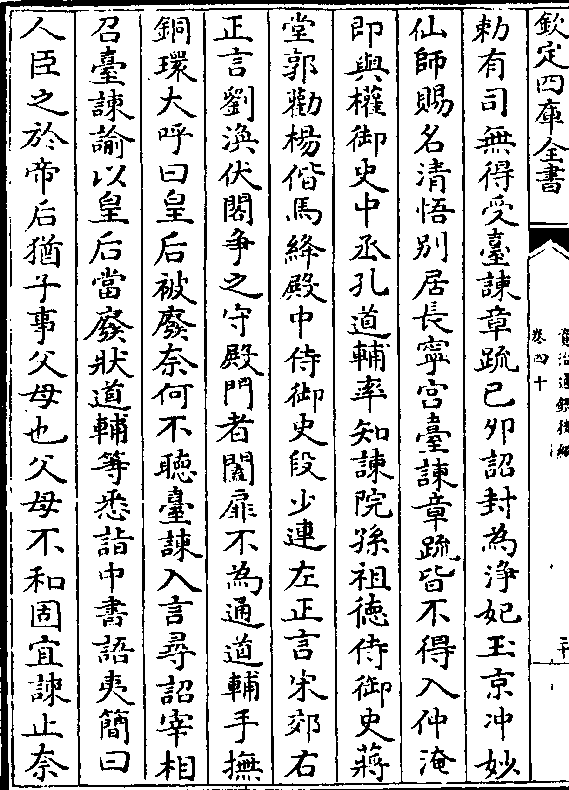 欽定四庫全書
卷四十
勅有司無得受臺諫章疏己夘詔封為淨妃玉京冲妙
仙師賜名清悟别居長寧宫臺諫章疏皆不得入仲淹
即與權御史中丞孔道輔率知諫院孫祖徳侍御史蔣
堂郭勸楊偕馬絳殿中侍御史段少連左正言宋郊右
正言劉渙伏閤爭之守殿門者闔扉不為通道輔手撫
銅環大呼曰皇后被廢奈何不聽臺諫入言尋詔宰相
召臺諫諭以皇后當廢狀道輔等悉詣中書語夷簡曰
人臣之於帝后猶子事父母也父母不和固宜諫止奈